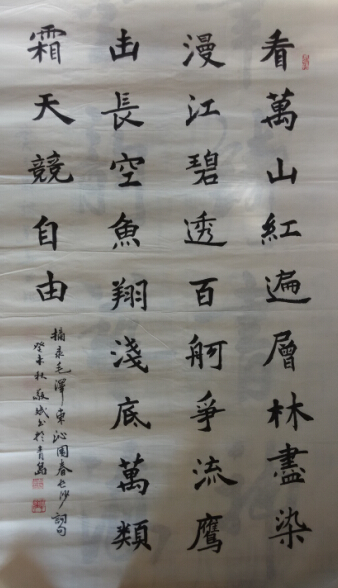 看萬山紅遍層林盡染
漫江碧透百舸爭流鷹
击長空魚翔淺底萬類
霜天競自由
摘录毛澤東沁園春長沙詞句
癸未秋敬斌书於青島